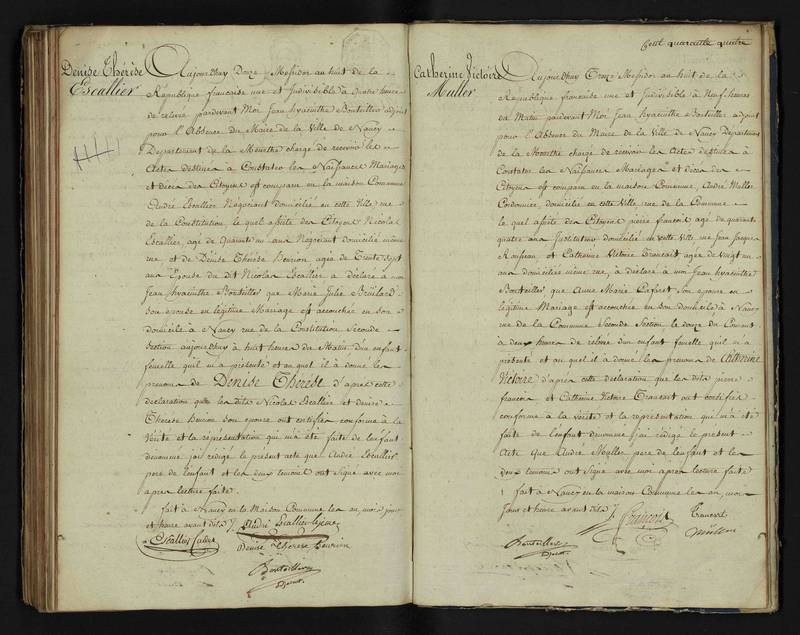 Denise Therèse
Escallier
Aujourdhuy Douze Messidor an huit de la
Republique française une et Indivisible à quatre heures
de relevé pardevant Moi Jean hyacinthe Bouteiller adjoint
pour l'Absence du Maire de la Ville de Nancy
Departement de la Meurthe chargé de recevoir les
Actes destinés à Constater les Naissances Mariages
et decès des Citoyens est comparu en la maison Commune
André Escallier Negociant domicilié en cette Ville rue
de la Constitution lequel assisté des Citoyens Nicolas
Escallier, agé de Quarante un ans Negociant domicilié même
rue et de Denise Therèse Henrion agée de Trente sept
ans Epouse du dit Nicolas Escallier a déclaré à moi
Jean hyacinthe Bouteiller que Marie Julie
son epouse en légitime Mariage est accouchée en son
domicile à Nancy rue de la Constitution Seconde
Section aujourdhuy à huit heures du Matin d'un enfant
femelle qu'il m'a présenté et auquel il a donné les
prenoms de Denise Therèse d'après cette
declaration que les dits Nicolas Escallier et denise
Therèse Henrion son epouse ont certifiés conforme à la
Vérité et la representation qui m'a été faite de l'enfant
denommé j'ai rédigé le present acte que André Escallier
pere de l'enfant et les deux temoins ont signé avec moi
apres lecture faite.
fait à Nancy en la Maison Commune les an, mois jour
et heure avant dits
André Escallier
Escallier
Denise Therese Henrion
Bouteiller
adjoint
feuil quarante quatre
Catherine Victoire
Muller
Aujourdhuy Treize Messidor an huit de la
Republique française une et Indivisible à Neuf heures
du Matin pardevant Moi Jean hyacinthe Bouteiller adjoint
pour l'Absence du Maire de la Ville de Nancy Departement
de la Meurthe chargé de recevoir les Actes destinés à
Constater les Naissances Mariages et decès des
Citoyens est comparu en la maison Commune, André Muller
Cordonnier, domicilié en cette Ville, rue de la Commune
lequel assisté des Citoyens pierre françois agé de quarante
quatre ans Instituteur domicilié en cette Ville, rue Jean Jacques
Rousseau et Catherine Victoire francois agée de vingt un
ans domiciliée même rue, a déclaré à moi Jean hyacinthe
Bouteiller que Anne Marie son epouse en
légitime Mariage est accouchée en son domicile à Nancy
rue de la Commune Seconde Section, le douze du Courant
à deux heures de relevé d'un enfant femelle qu'il m'a
présenté et auquel il a donné les prenoms de Catherine
Victoire d'après cette declaration que les dits pierre
francois et Catherine Victoire francois ont certifiés
conforme à la vérité et la representation qui m'a été
faite de l'enfant denommé j'ai rédigé le présent
Acte que André Muller pere de l'enfant et les
deux temoins ont signé avec moi apres lecture faite
fait à Nancy en la maison Commune les an, mois
Jour et heure avant dits
françois
Bouteiller
adjoint